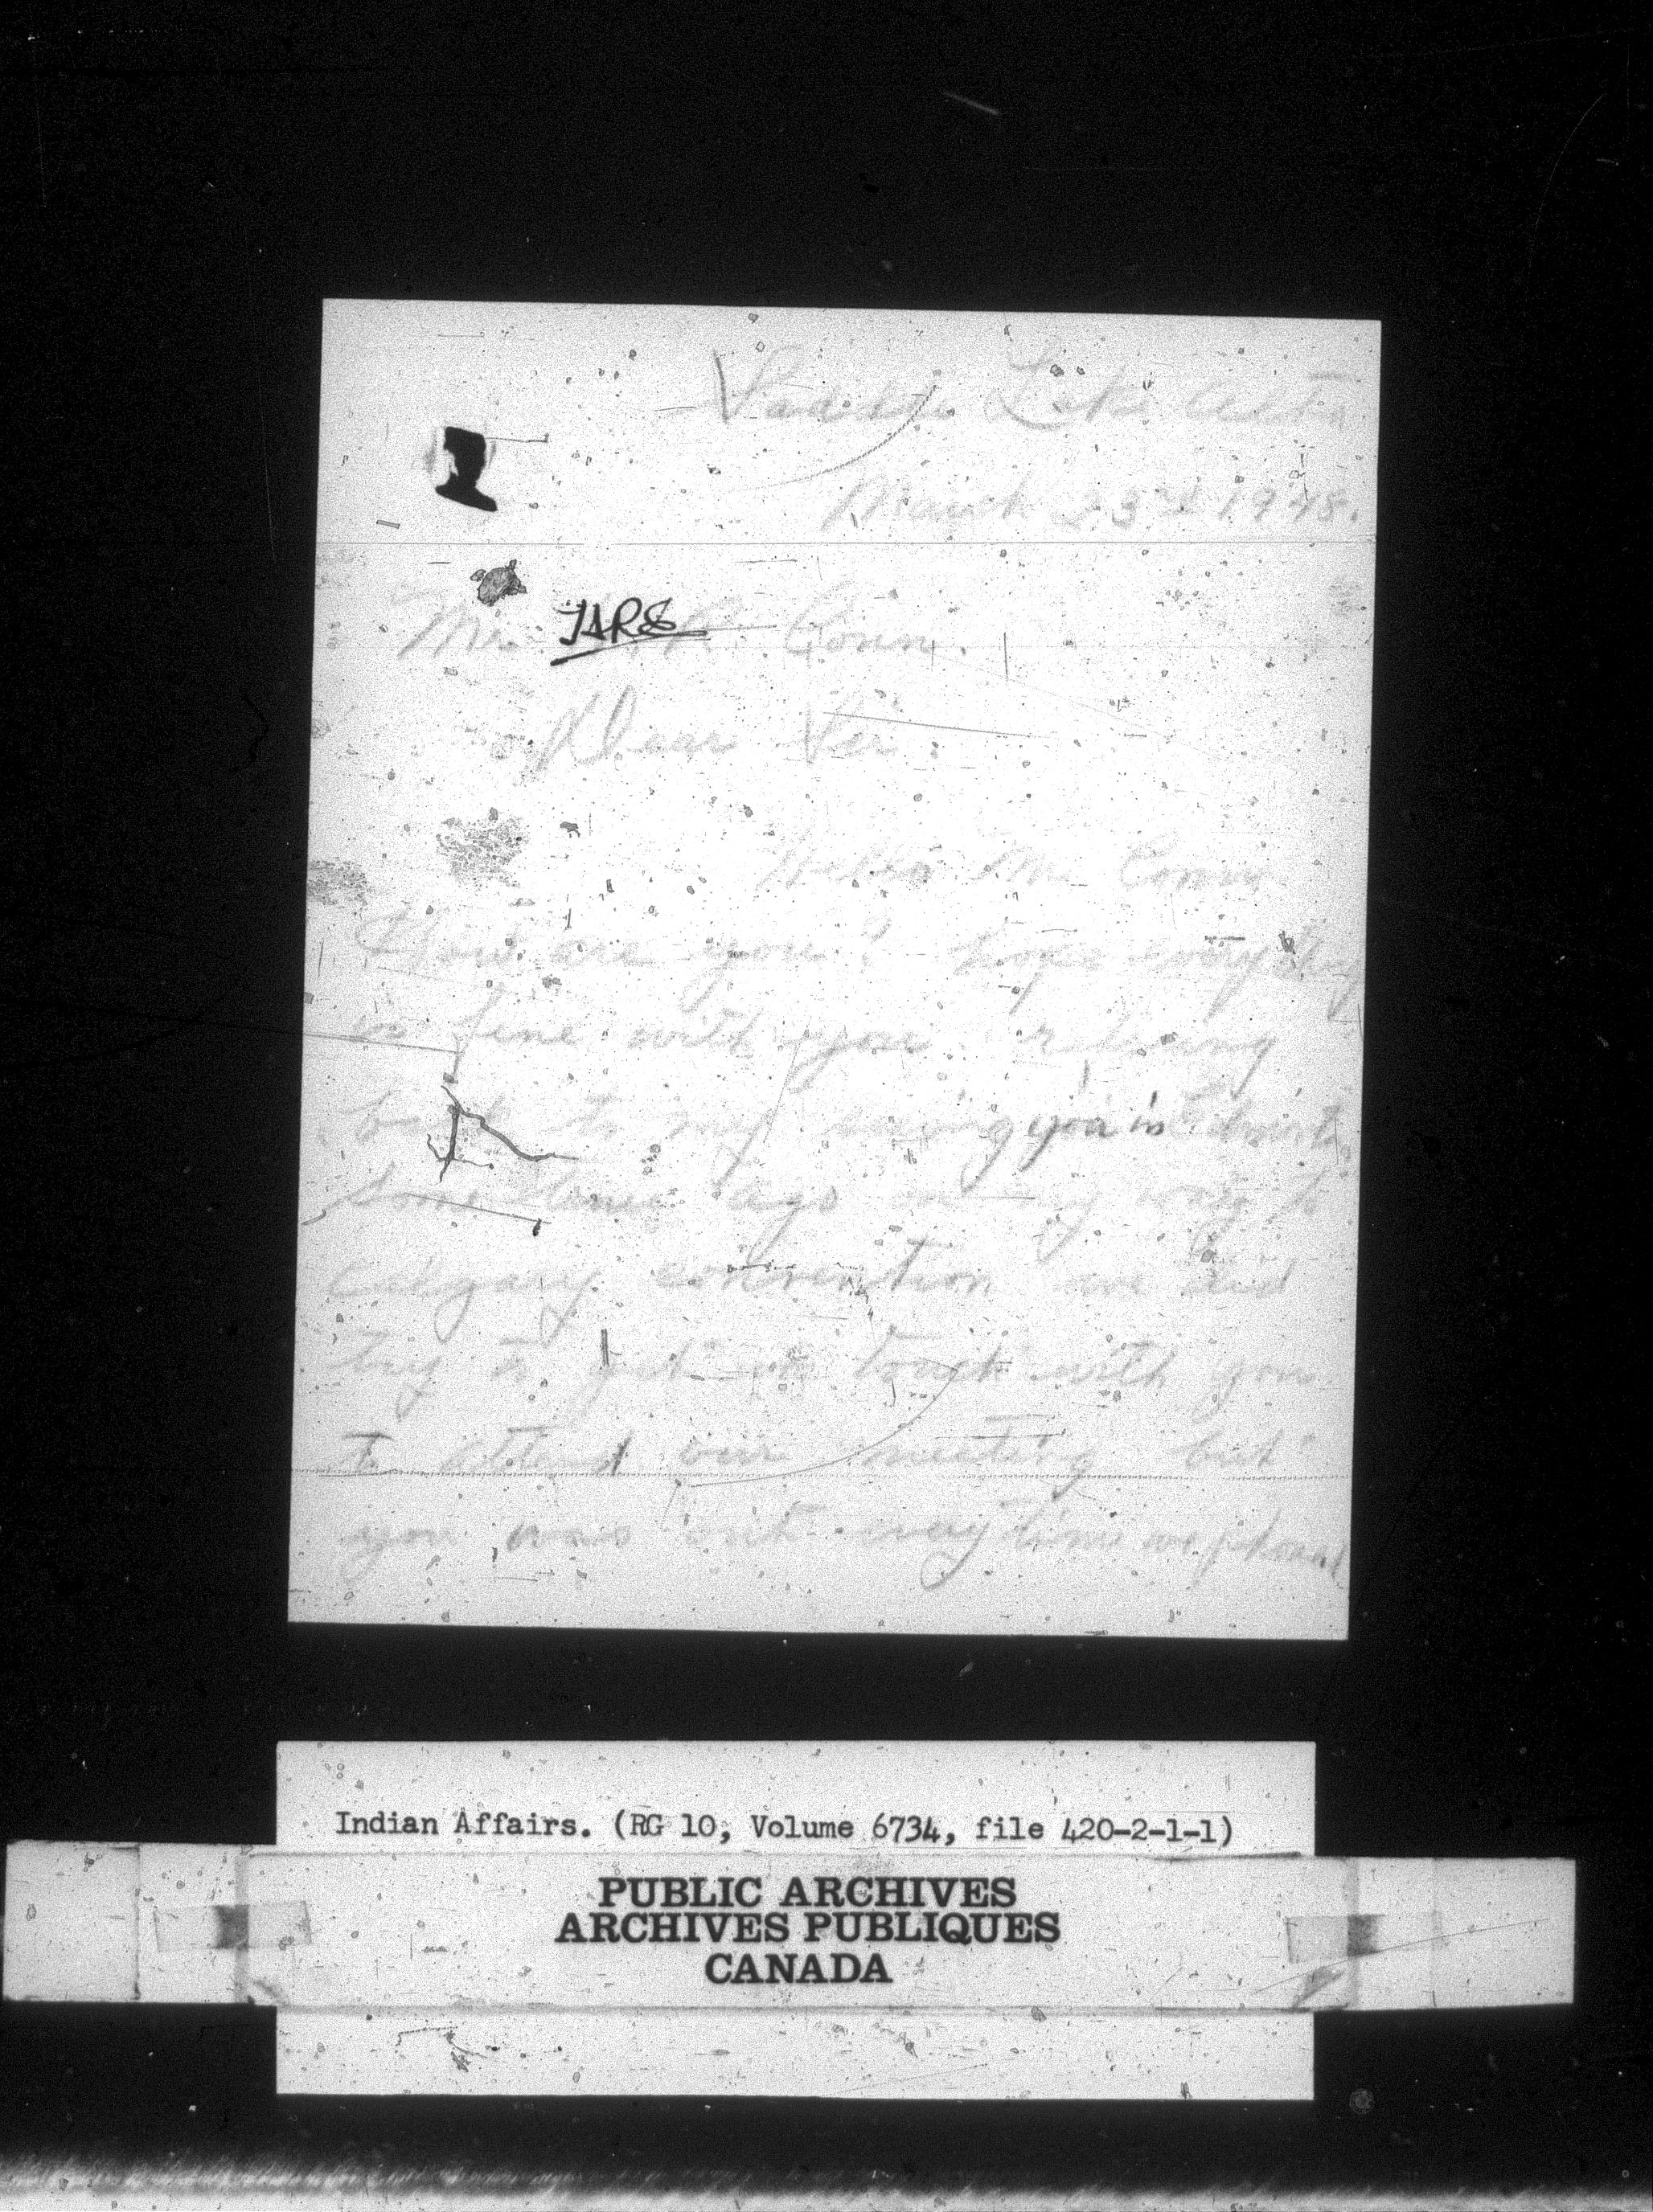 Saddle Lake Alta
March 23rd 1948.
JARS
Mr. Conn.
Dear Sir.
Hello Mr Conn
How are you? hope everything
is fine with you
back to my seeing you in Edmonton
some time ago on my way to
calgary convention we did
try to get in touch with you
to attend our meeting but
you was out every time we phoned
Indian Affairs. (RG 10, Volume 6734, file 420-2-1-1)
PUBLIC ARCHIVES
ARCHIVES PUBLIQUES
CANADA